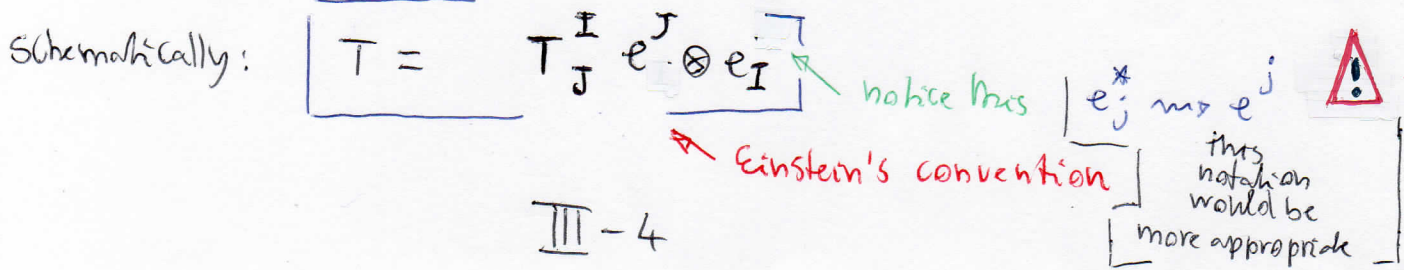 schematically: T = T^I_J e^J ⊗ e_I
notice this
e^*_j ⇝ e^j
!
Einstein's convention
this
notation
would be
more appropriate
III - 4